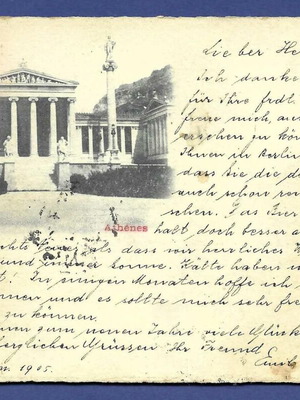 Lieber He
Ich danke
für Ihre frdl.
freue mich, aus
ersehen zu kön
Ihnen in Berlin
dass Sie die d
auch schon
schen. Das
Athènes
hat doch besser a
als dass wir herrliches
und immer Sonne. Kälte haben
In einigen Monaten hoffe ich
und es sollte mich sehr fre
zu können.
zum neuen Jahre viele Glück
herzlichen Grüssen Ihr Freund
Emil
1905.